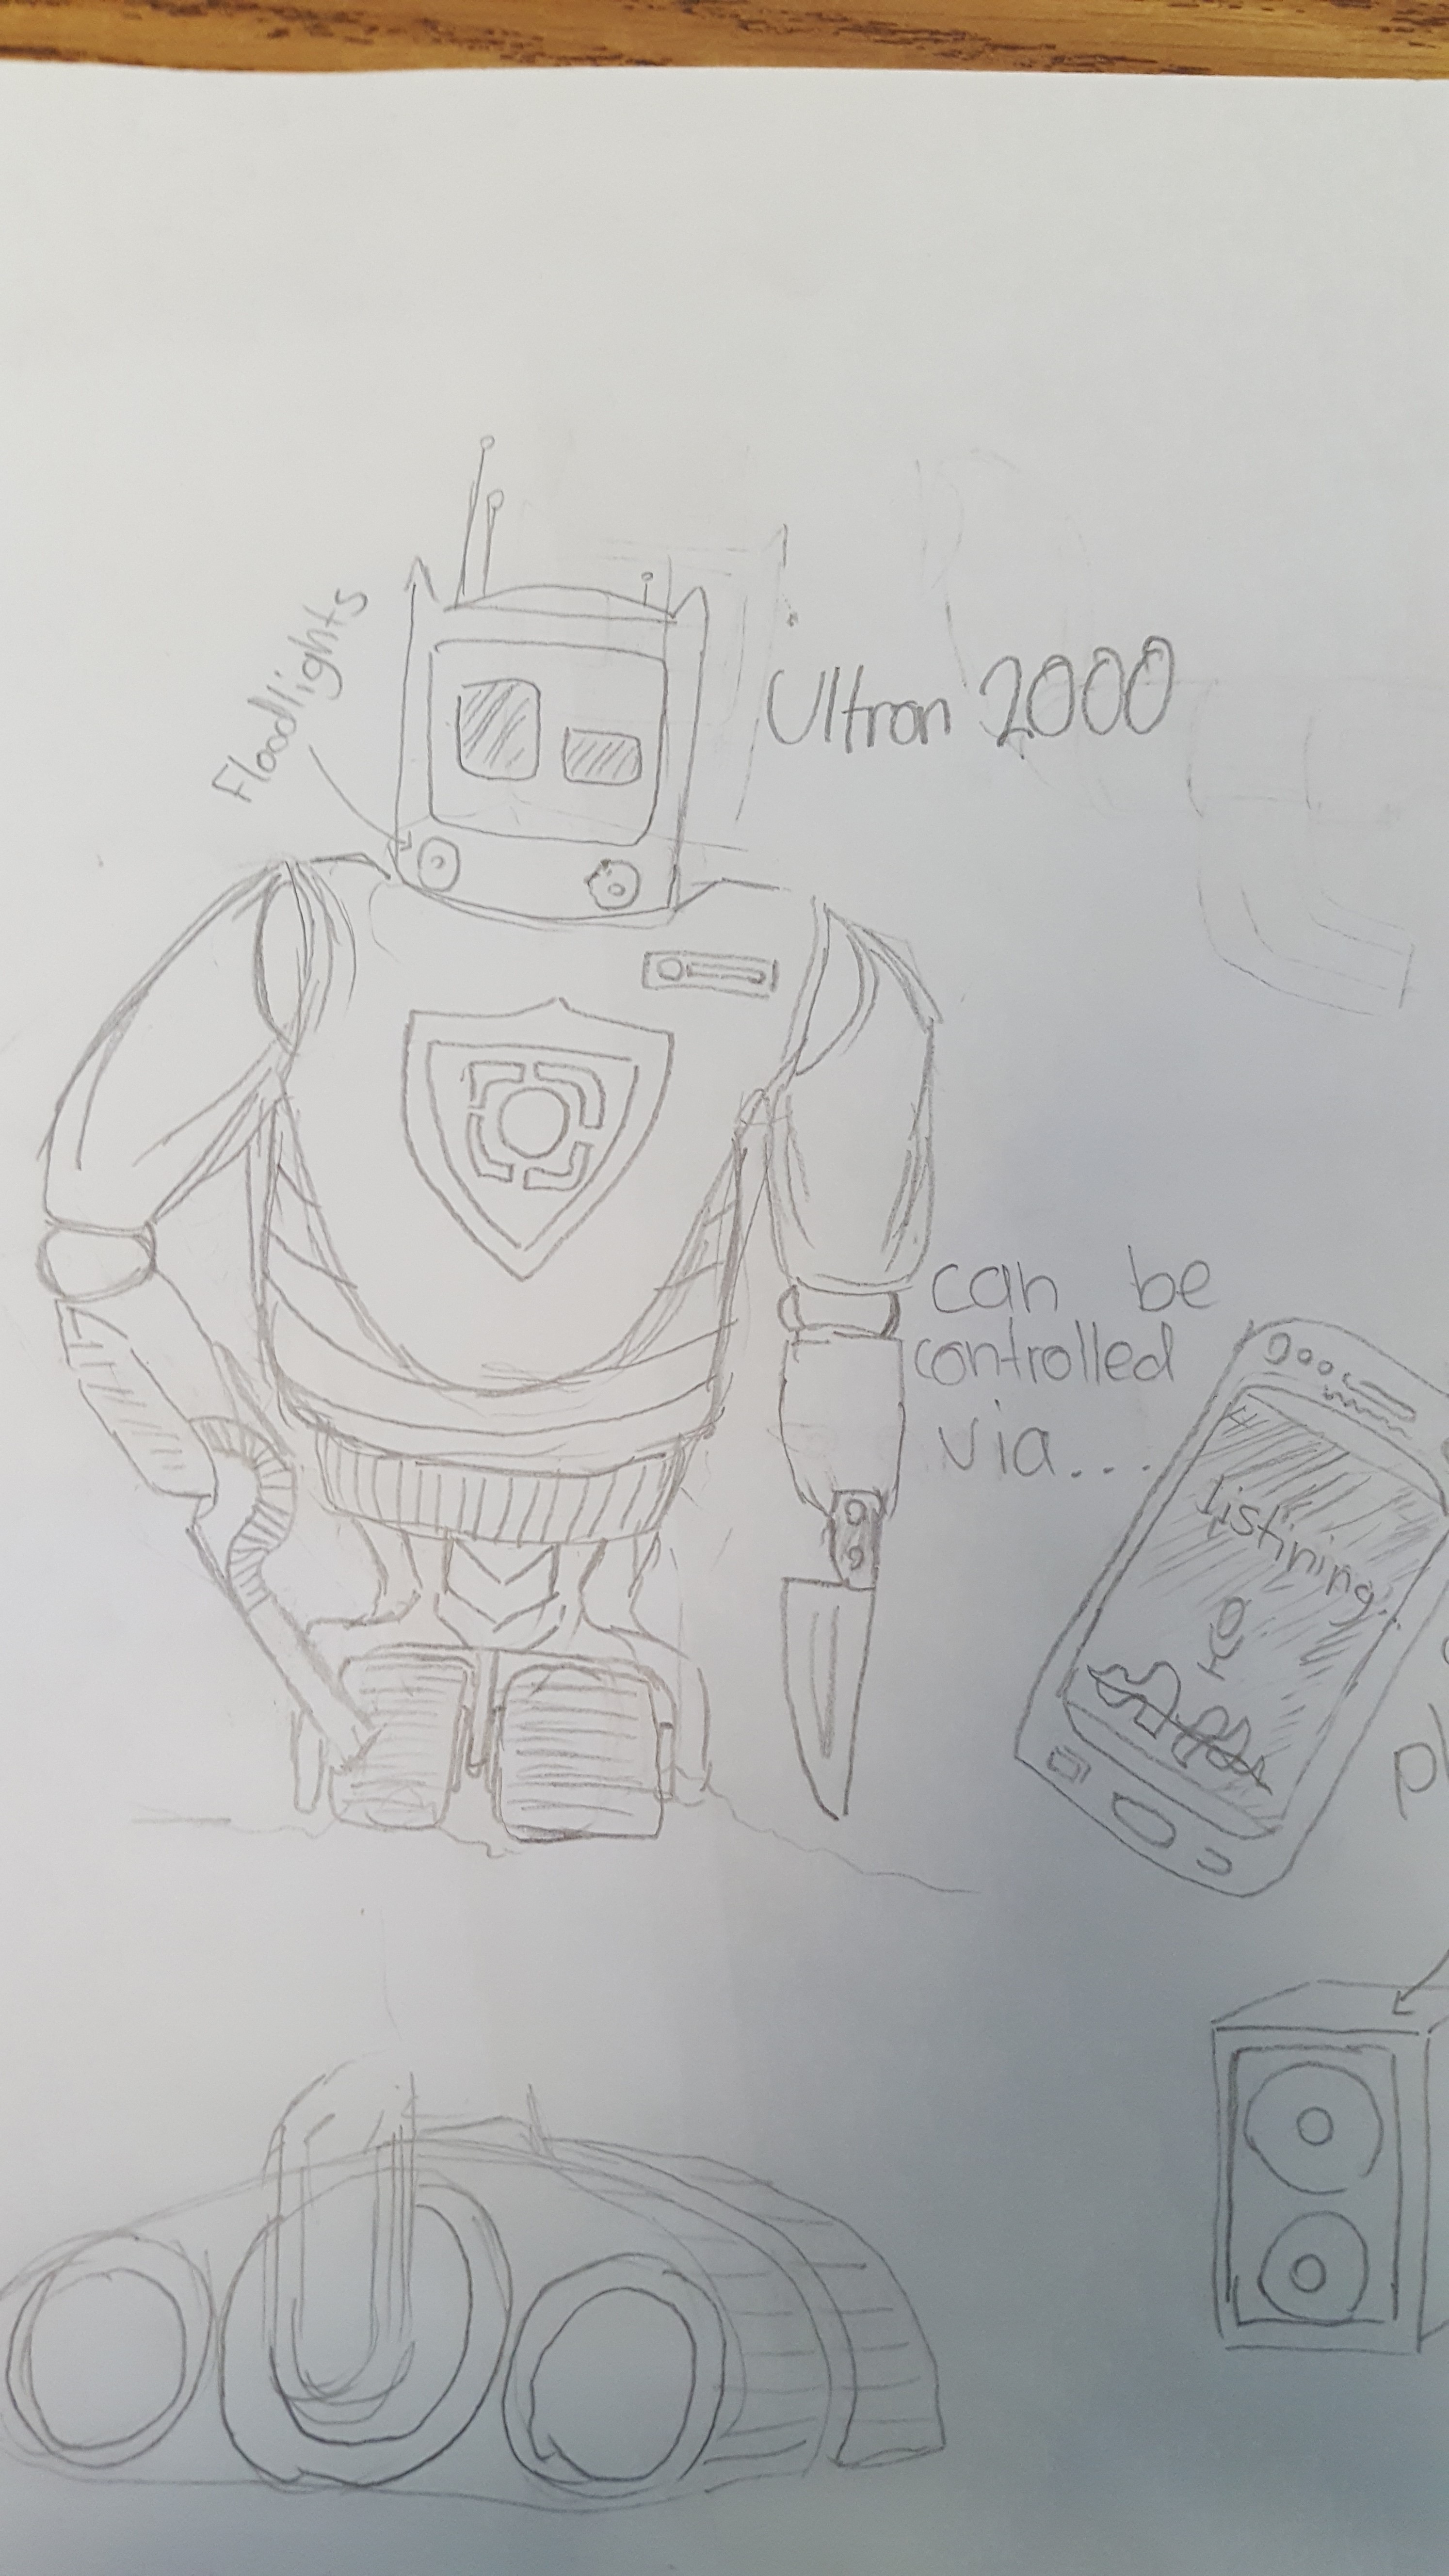 Floodlights
Ultron 2000
can be
controlled
via...
listining..
pl